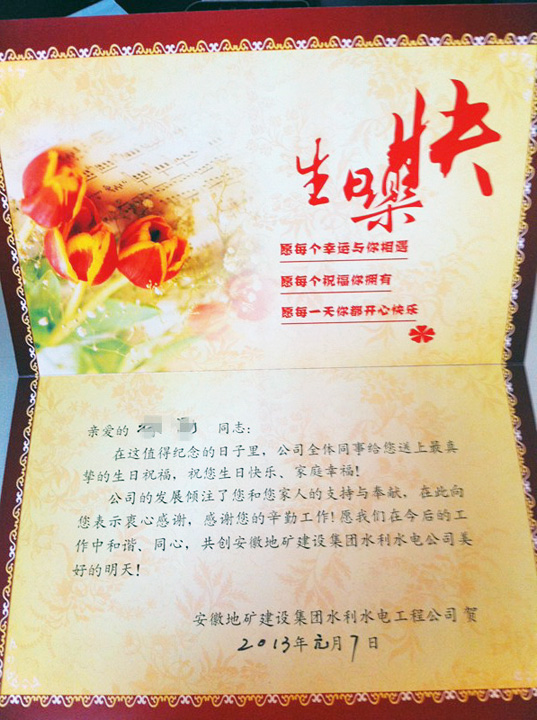 生日快樂
愿每个幸运与你相遇
愿每个祝福你拥有
愿每一天你都开心快乐
亲爱的 同志:
在这值得纪念的日子里，公司全体同事给您送上最真
挚的生日祝福，祝您生日快乐、家庭幸福!
公司的发展倾注了您和您家人的支持与奉献，在此向
您表示衷心感谢，感谢您的辛勤工作!愿我们在今后的工
作中和谐、同心，共创安徽地矿建设集团水利水电公司美
好的明天!
安徽地矿建设集团水利水电工程公司 贺
2013年元月7日